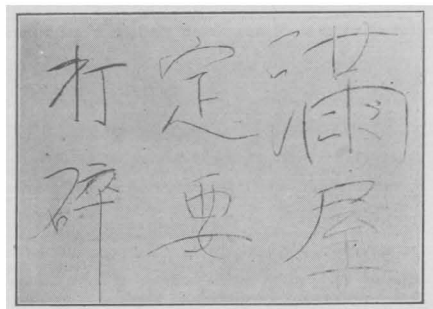 滿屋
定要
打碎